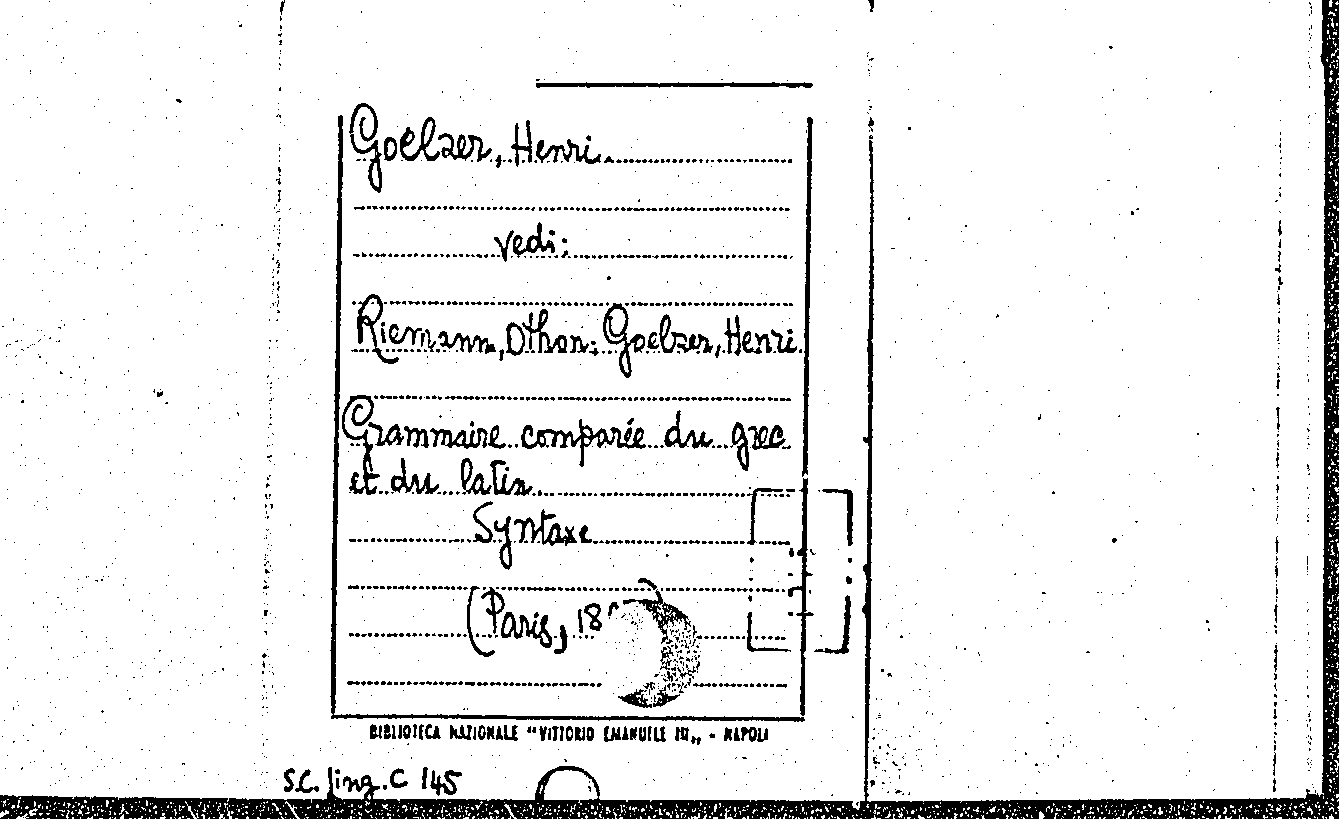 Goelzer, Henri.
vedi:
Riemann, Othon; Goelzer, Henri
Grammaire comparée du grec
et du latin.
Syntaxe
(Paris, 18
BIBLIOTECA NAZIONALE "VITTORIO EMANUELE III„ - NAPOLI
S.C. ling. C 145